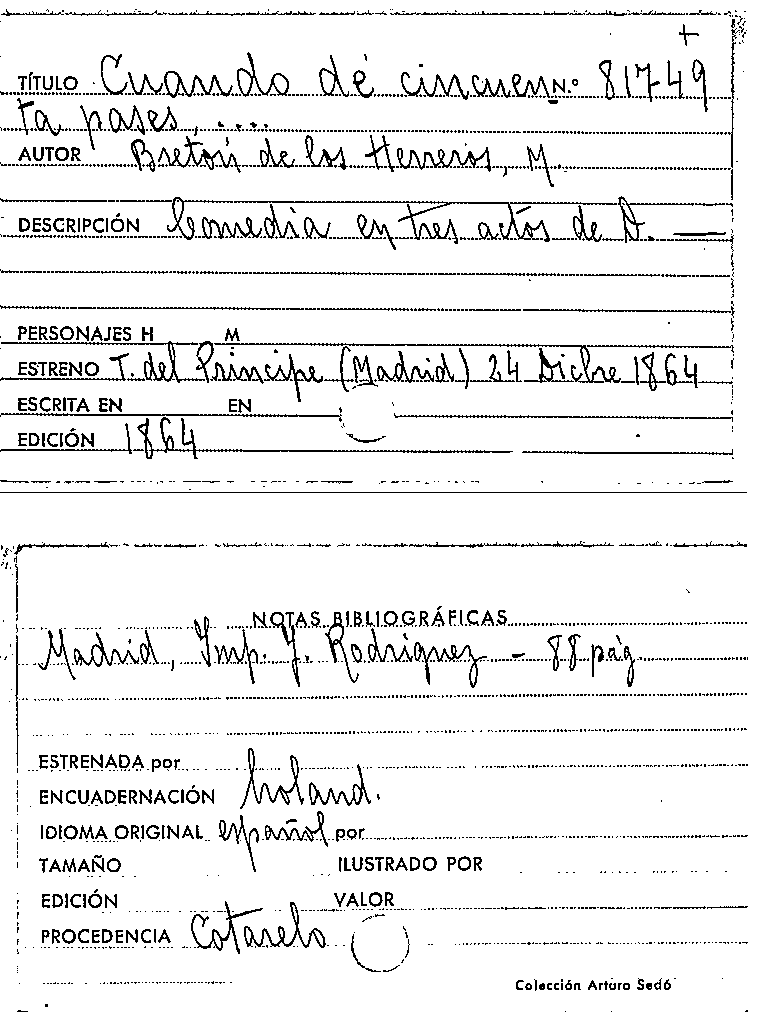 +
TÍTULO Cuando de cincuen N.º 81749
ta pases, ....
AUTOR Bretón de los Herreros, M.
DESCRIPCIÓN Comedia en tres actos de D. —
PERSONAJES H M
ESTRENO T. del Principe (Madrid) 24 Dicbre 1864
ESCRITA EN EN
EDICIÓN 1864
NOTAS BIBLIOGRÁFICAS
Madrid, Imp. J. Rodríguez - 88 pág
ESTRENADA por
ENCUADERNACIÓN holand.
IDIOMA ORIGINAL español por
TAMAÑO ILUSTRADO POR
EDICIÓN VALOR
PROCEDENCIA Cotarelo
Colección Arturo Sedó